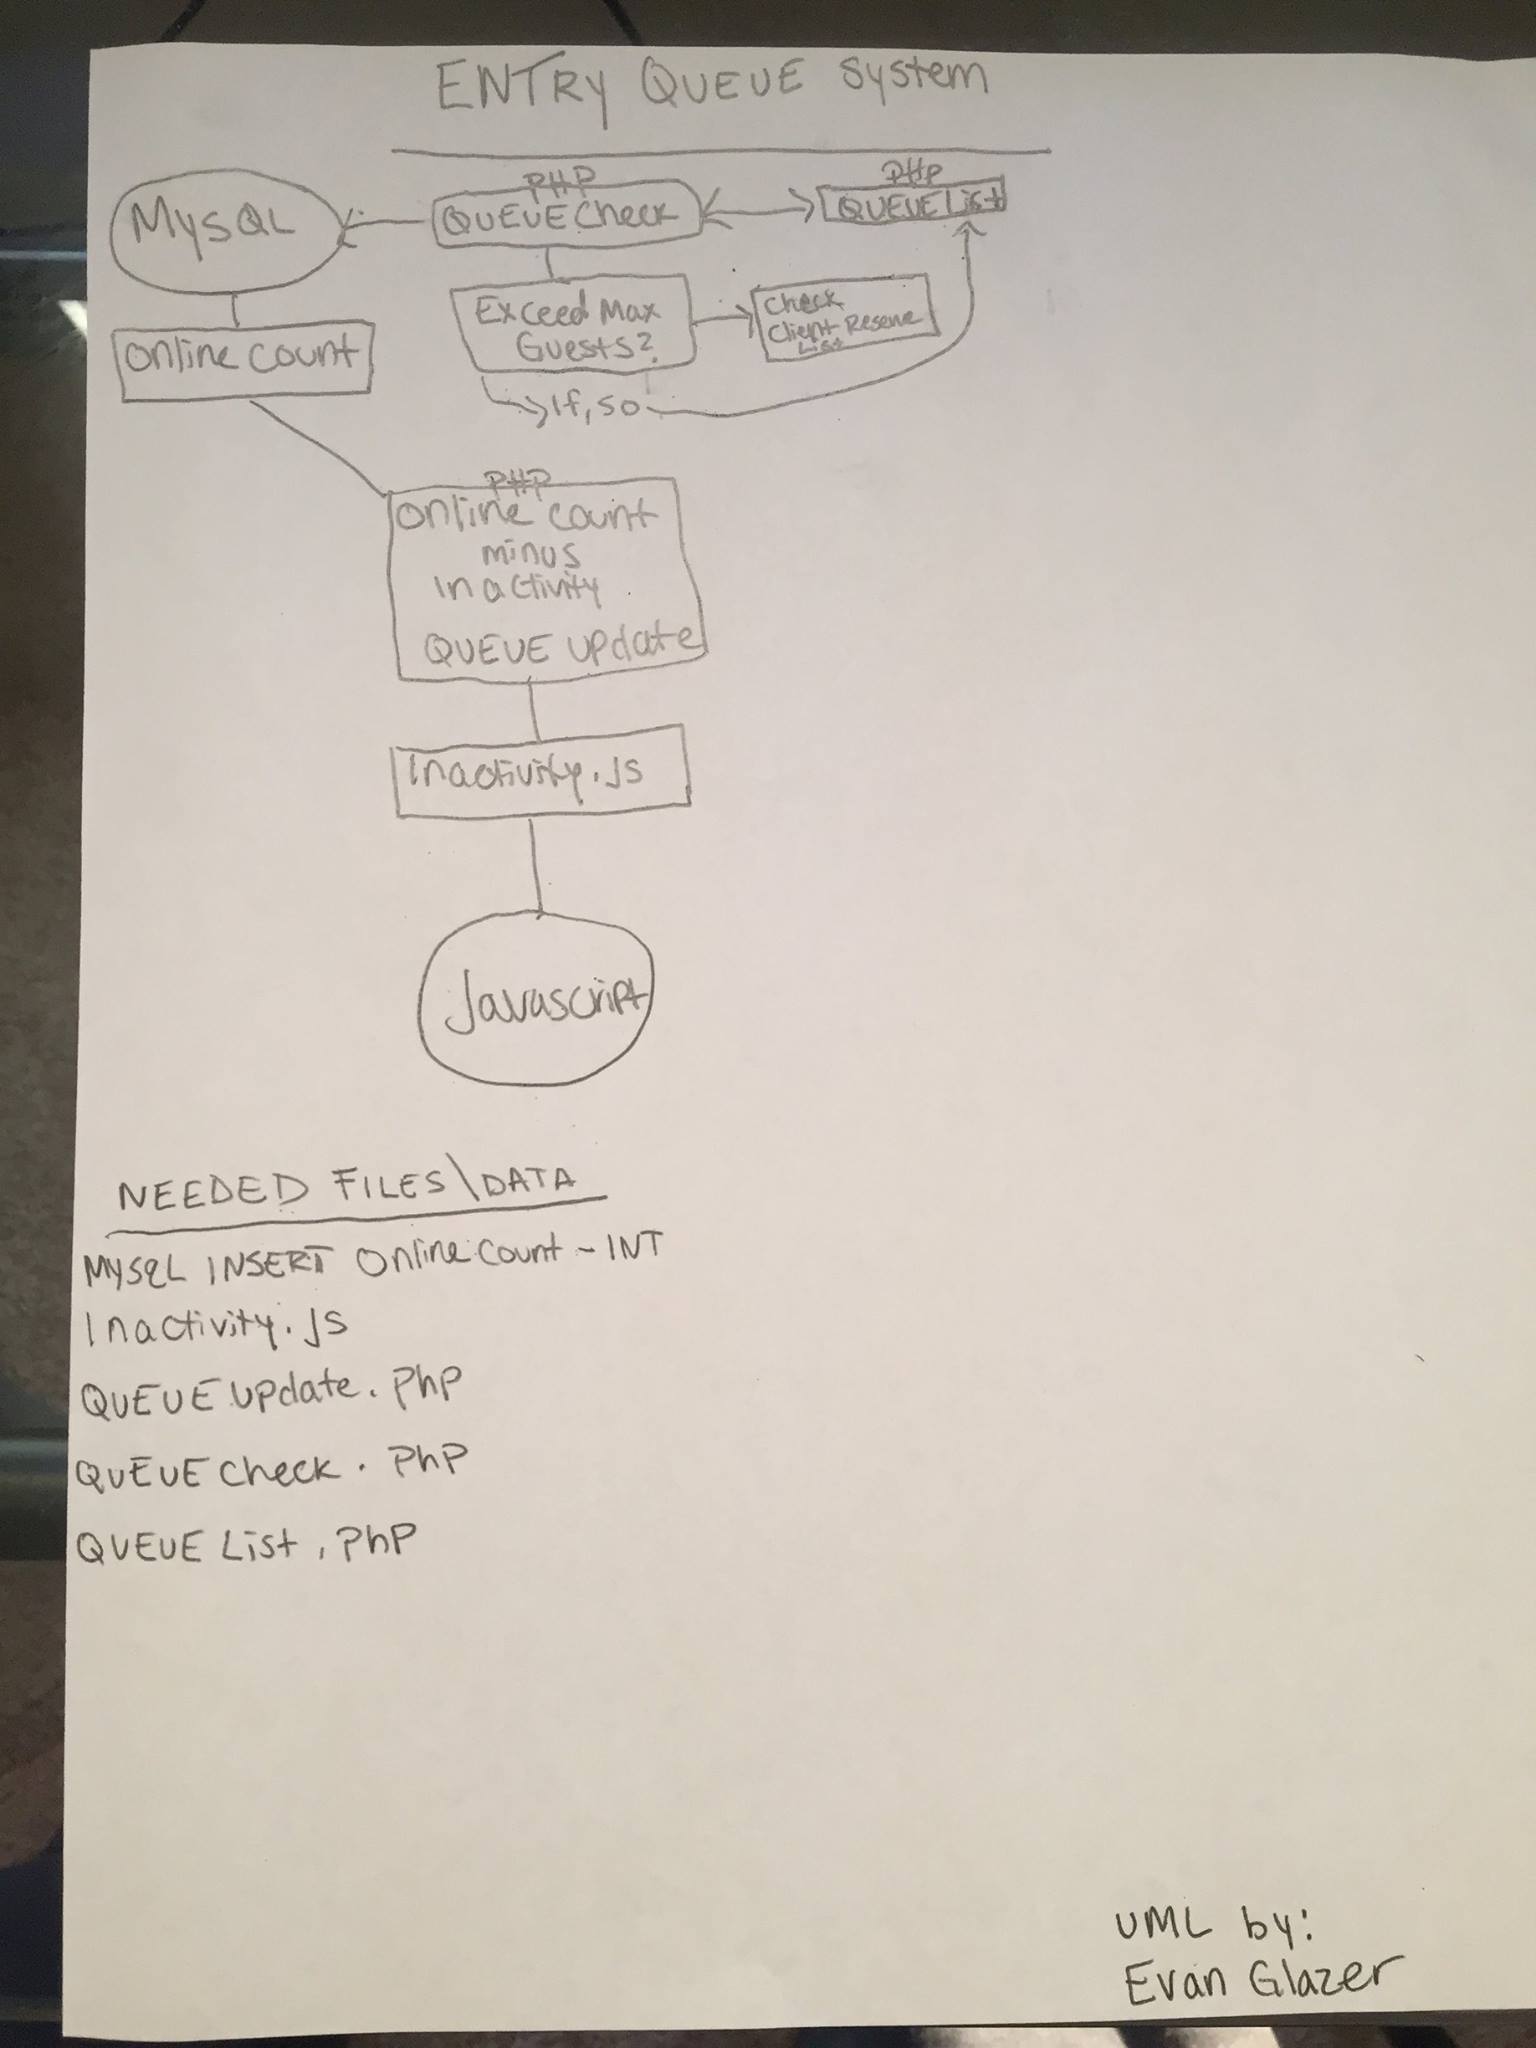 ENTRY QUEUE System
PHP
QUEUE Check
PHP
QUEUE List
MySQL
Online count
Exceed Max
Guests?
Check
Client Reserve
List
If, so
PHP
Online count
minus
Inactivity
QUEUE update
Inactivity.js
Javascript
NEEDED FILES\DATA
MYSQL INSERT Online count - INT
Inactivity.js
QUEUE update.php
QUEUE check.php
QUEUE List.php
UML by:
Evan Glazer